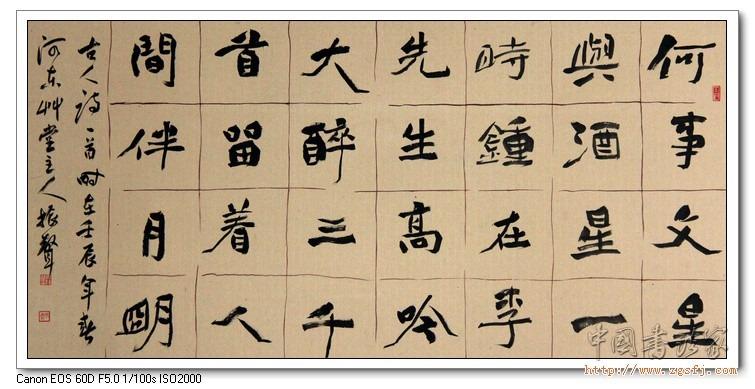 何事文星
與酒星一
時鍾在李
先生高吟
大醉三千
首留着人
間伴月明
古人诗一首时在壬辰年春
河东艸堂主人振聲
中國書法家
http://www.zgsfj.com
Canon EOS 60D F5.0 1/100s ISO2000